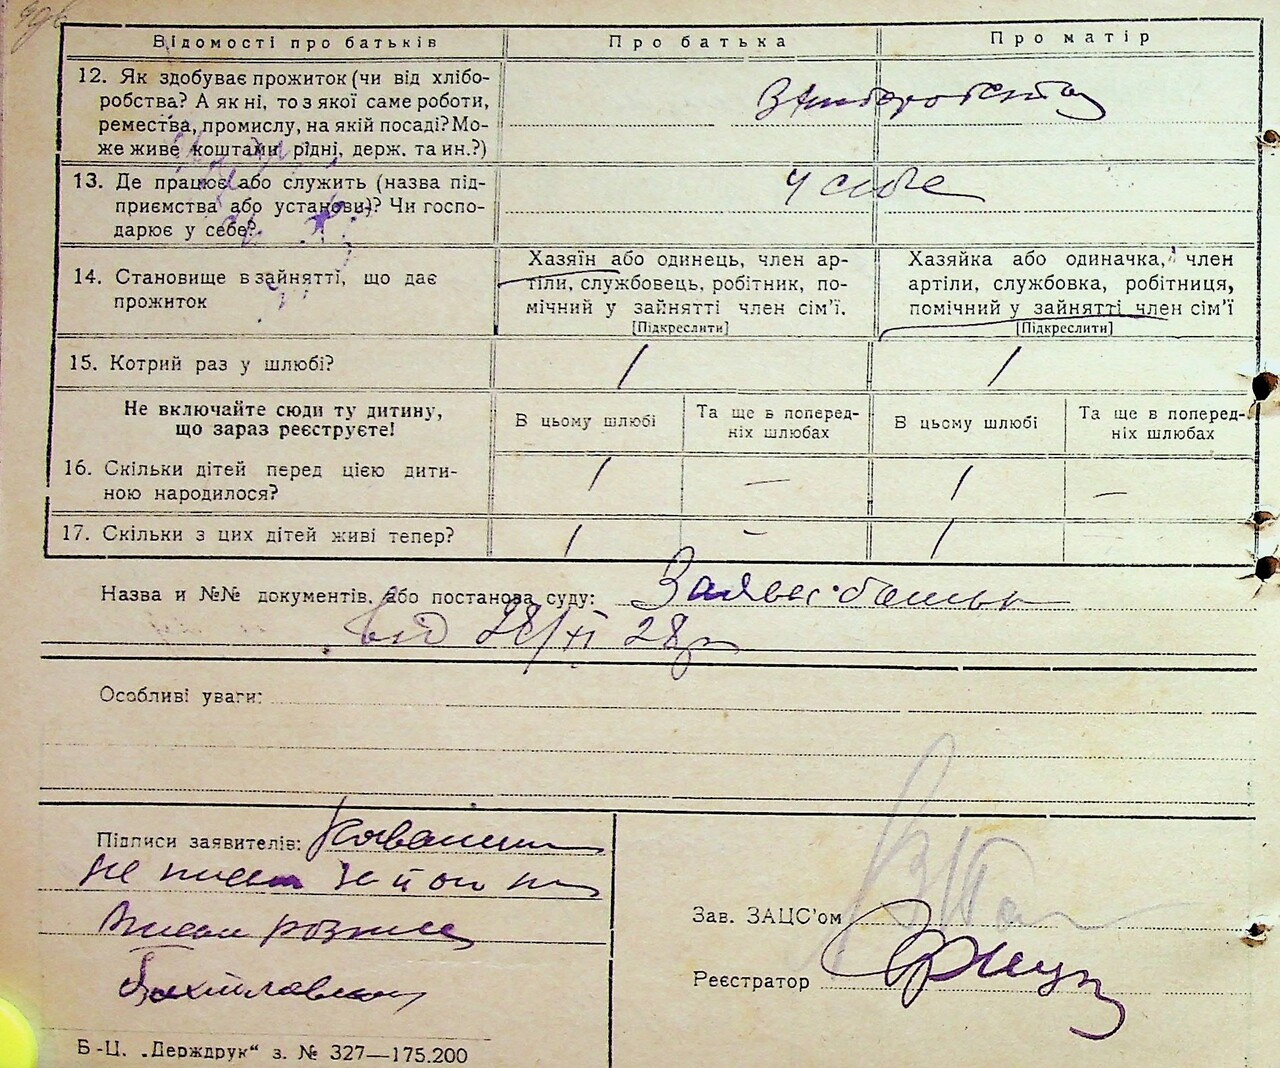 Відомості про батьків
Про батька
Про матір
12. Як здобуває прожиток (чи від хлібо-
робства? А як ні, то з якої саме роботи,
ремества, промислу, на якій посаді? Мо-
же живе коштами рідні, держ. та ин.?)
13. Де працює або служить (назва під-
приємства або установи)? Чи госпо-
дарює у себе?
у себе
14. Становище в зайнятті, що дає
прожиток
Хазяїн або одинець, член ар-
тіли, службовець, робітник, по-
мічний у зайнятті член сім'ї.
[Підкреслити]
Хазяйка або одиначка, член
артіли, службовка, робітниця,
помічний у зайнятті член сім'ї
[Підкреслити]
15. Котрий раз у шлюбі?
1
1
Не включайте сюди ту дитину,
що зараз реєструєте!
В цьому шлюбі
Та ще в поперед-
ніх шлюбах
В цьому шлюбі
Та ще в поперед-
ніх шлюбах
16. Скільки дітей перед цією дити-
ною народилося?
1 — 1 —
17. Скільки з цих дітей живі тепер?
1 — 1 —
Назва й №№ документів, або постанова суду: Заява батька
від 28/XI 28р
Особливі уваги:
Підписи заявителів:
Зав. ЗАЦС'ом
Реєстратор
Б-Ц. „Держдрук“ з. № 327—175.200